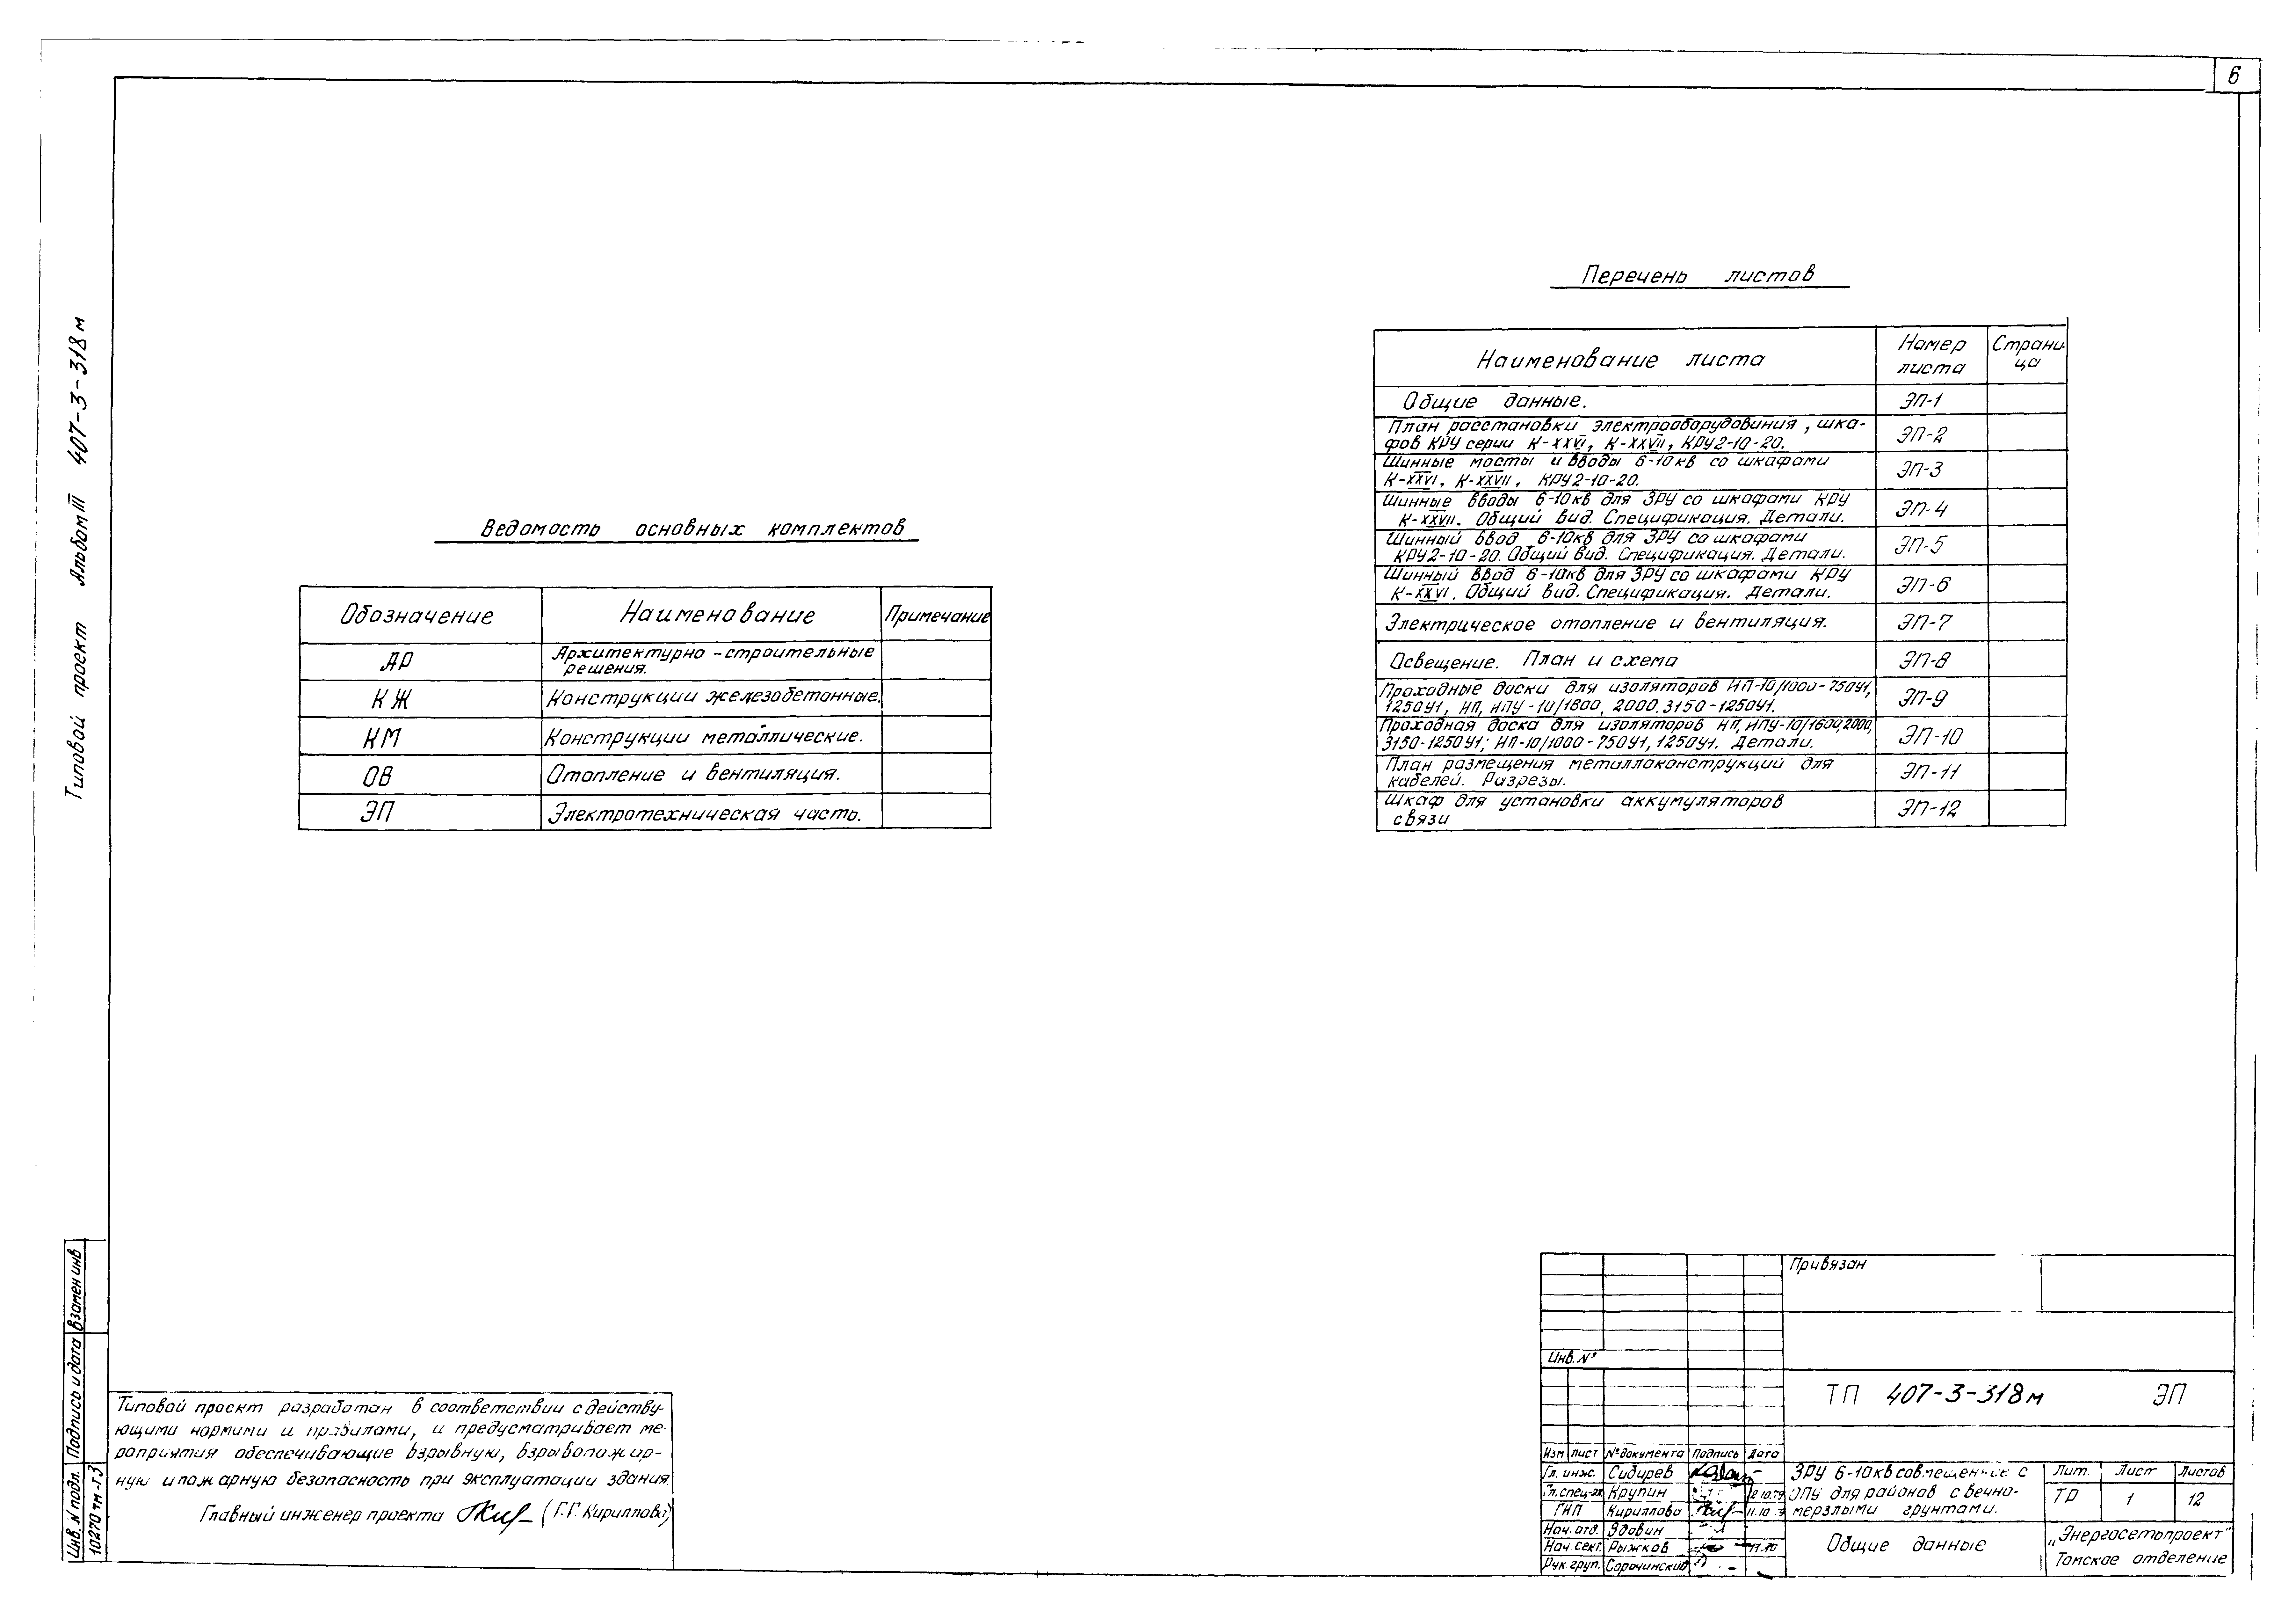 6
Типовой проект Альбом III 407-3-318м
Перечень листов
Наименование листа
Номер листа
Страни-
ца
Общие данные. ЭП-1
План расстановки электрооборудования, шка-
фов КРУ серии К-XXVI, К-XXVII, КРУ2-10-20. ЭП-2
Шинные мосты и вводы 6-10кв со шкафами
К-XXVI, К-XXVII, КРУ2-10-20. ЭП-3
Шинные вводы 6-10кв для ЗРУ со шкафами КРУ
К-XXVII. Общий вид. Спецификация. Детали. ЭП-4
Шинный ввод 6-10кв для ЗРУ со шкафами
КРУ2-10-20. Общий вид. Спецификация. Детали. ЭП-5
Шинный ввод 6-10кв для ЗРУ со шкафами КРУ
К-XXVI. Общий вид. Спецификация. Детали. ЭП-6
Электрическое отопление и вентиляция. ЭП-7
Освещение. План и схема ЭП-8
Проходные доски для изоляторов ИП-10/1000-750У1,
1250У1, ИП, ИПУ-10/1600, 2000, 3150-1250У1. ЭП-9
Проходная доска для изоляторов ИП, ИПУ-10/1600,2000,
3150-1250У1; ИП-10/1000-750У1, 1250У1. Детали. ЭП-10
План размещения металлоконструкций для
кабелей. Разрезы. ЭП-11
Шкаф для установки аккумуляторов
связи ЭП-12
Ведомость основных комплектов
Обозначение Наименование Примечание
АР Архитектурно-строительные
решения.
КЖ Конструкции железобетонные.
КМ Конструкции металлические.
ОВ Отопление и вентиляция.
ЭП Электротехническая часть.
Типовой проект разработан в соответствии с действу-
ющими нормами и правилами, и предусматривает ме-
роприятия обеспечивающие взрывную, взрывопожар-
ную и пожарную безопасность при эксплуатации здания.
Главный инженер проекта (Г.Г. Кириллова)
Инв. N подл. Подпись и дата Взамен инв
10270тм-т3
Привязан
Инв. №
ТП 407-3-318м ЭП
Изм Лист № документа Подпись Дата
Гл. инж. Сидирев
Гл. спец-эл Крупин 12.10.79
ГИП Кириллова 11.10.79
Нач. отд. Здавин
Нач. сект. Рыжков 11.10
Рук. груп. Сорочинский
ЗРУ 6-10кв совмещенное с
ОПУ для районов с вечно-
мерзлыми грунтами.
Лит. Лист Листов
ТР 1 12
Общие данные
„Энергосетьпроект"
Томское отделение